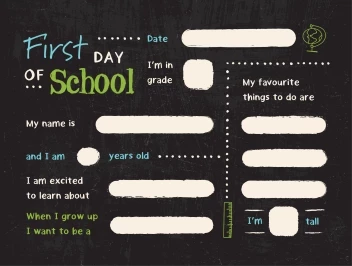 First DAY
OF School
Date
I'm in
grade
My name is
and I am years old
I am excited
to learn about
When I grow up
I want to be a
My favourite
things to do are
I'm tall